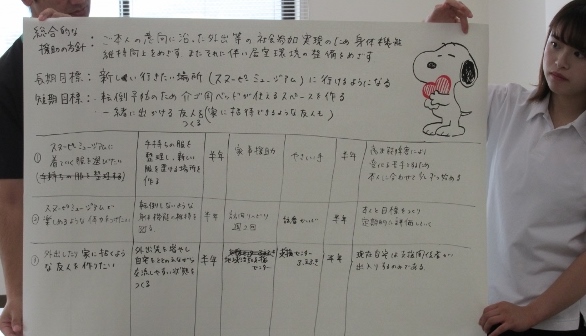 総合的な
援助の方針：ご本人の意向に沿った外出等の社会参加実現のため身体機能
維持向上をめざす またそれに伴い居室環境の整備をめざす
長期目標：新しい行きたい場所（スヌーピーミュージアム）に行けるようになる
短期目標：転倒予防のため 介ゴ用ベッドが使えるスペースを作る
一緒に出かける友人を（家に招待できるような友人も）
つくる
① スヌーピーミュージアムに
着ていく服を選びたい
（手持ちの服を整理する）
手持ちの服を
整理し、新しい
服を置ける場所を
作る
半年
家事援助
やさしい手
半年
本人に合わせて
② スヌーピーミュージアムで
楽しめるような体力をつけたい
転倒しないような
図る
半年
週2回
半年
きちんと目標をつくり
定期的に評価していく
③ 外出したり家に招くよう
な友人を作りたい
外出先を増やし
自宅をととのえながら
交流しやすい状態を
つくる
半年
センター
支援センター
半年
現在自宅は支援関係者が
出入りするのみである